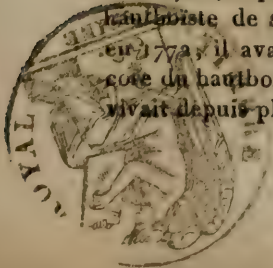 hautboiste de s
en 1772, il ava
core du hautbo
vivait depuis p
ROYAL